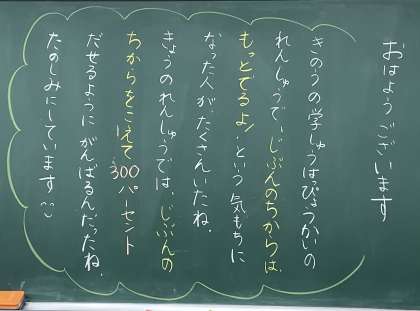 おはようございます
きのうの学しゅうはっぴょうかいの
れんしゅうで、じぶんのちからは、
もっとでるよ!という気もちに
なった人が、たくさんいたね。
きょうのれんしゅうでは、じぶんの
ちからをこえて300パーセント
だせるように がんばるんだったね。
たのしみにしています